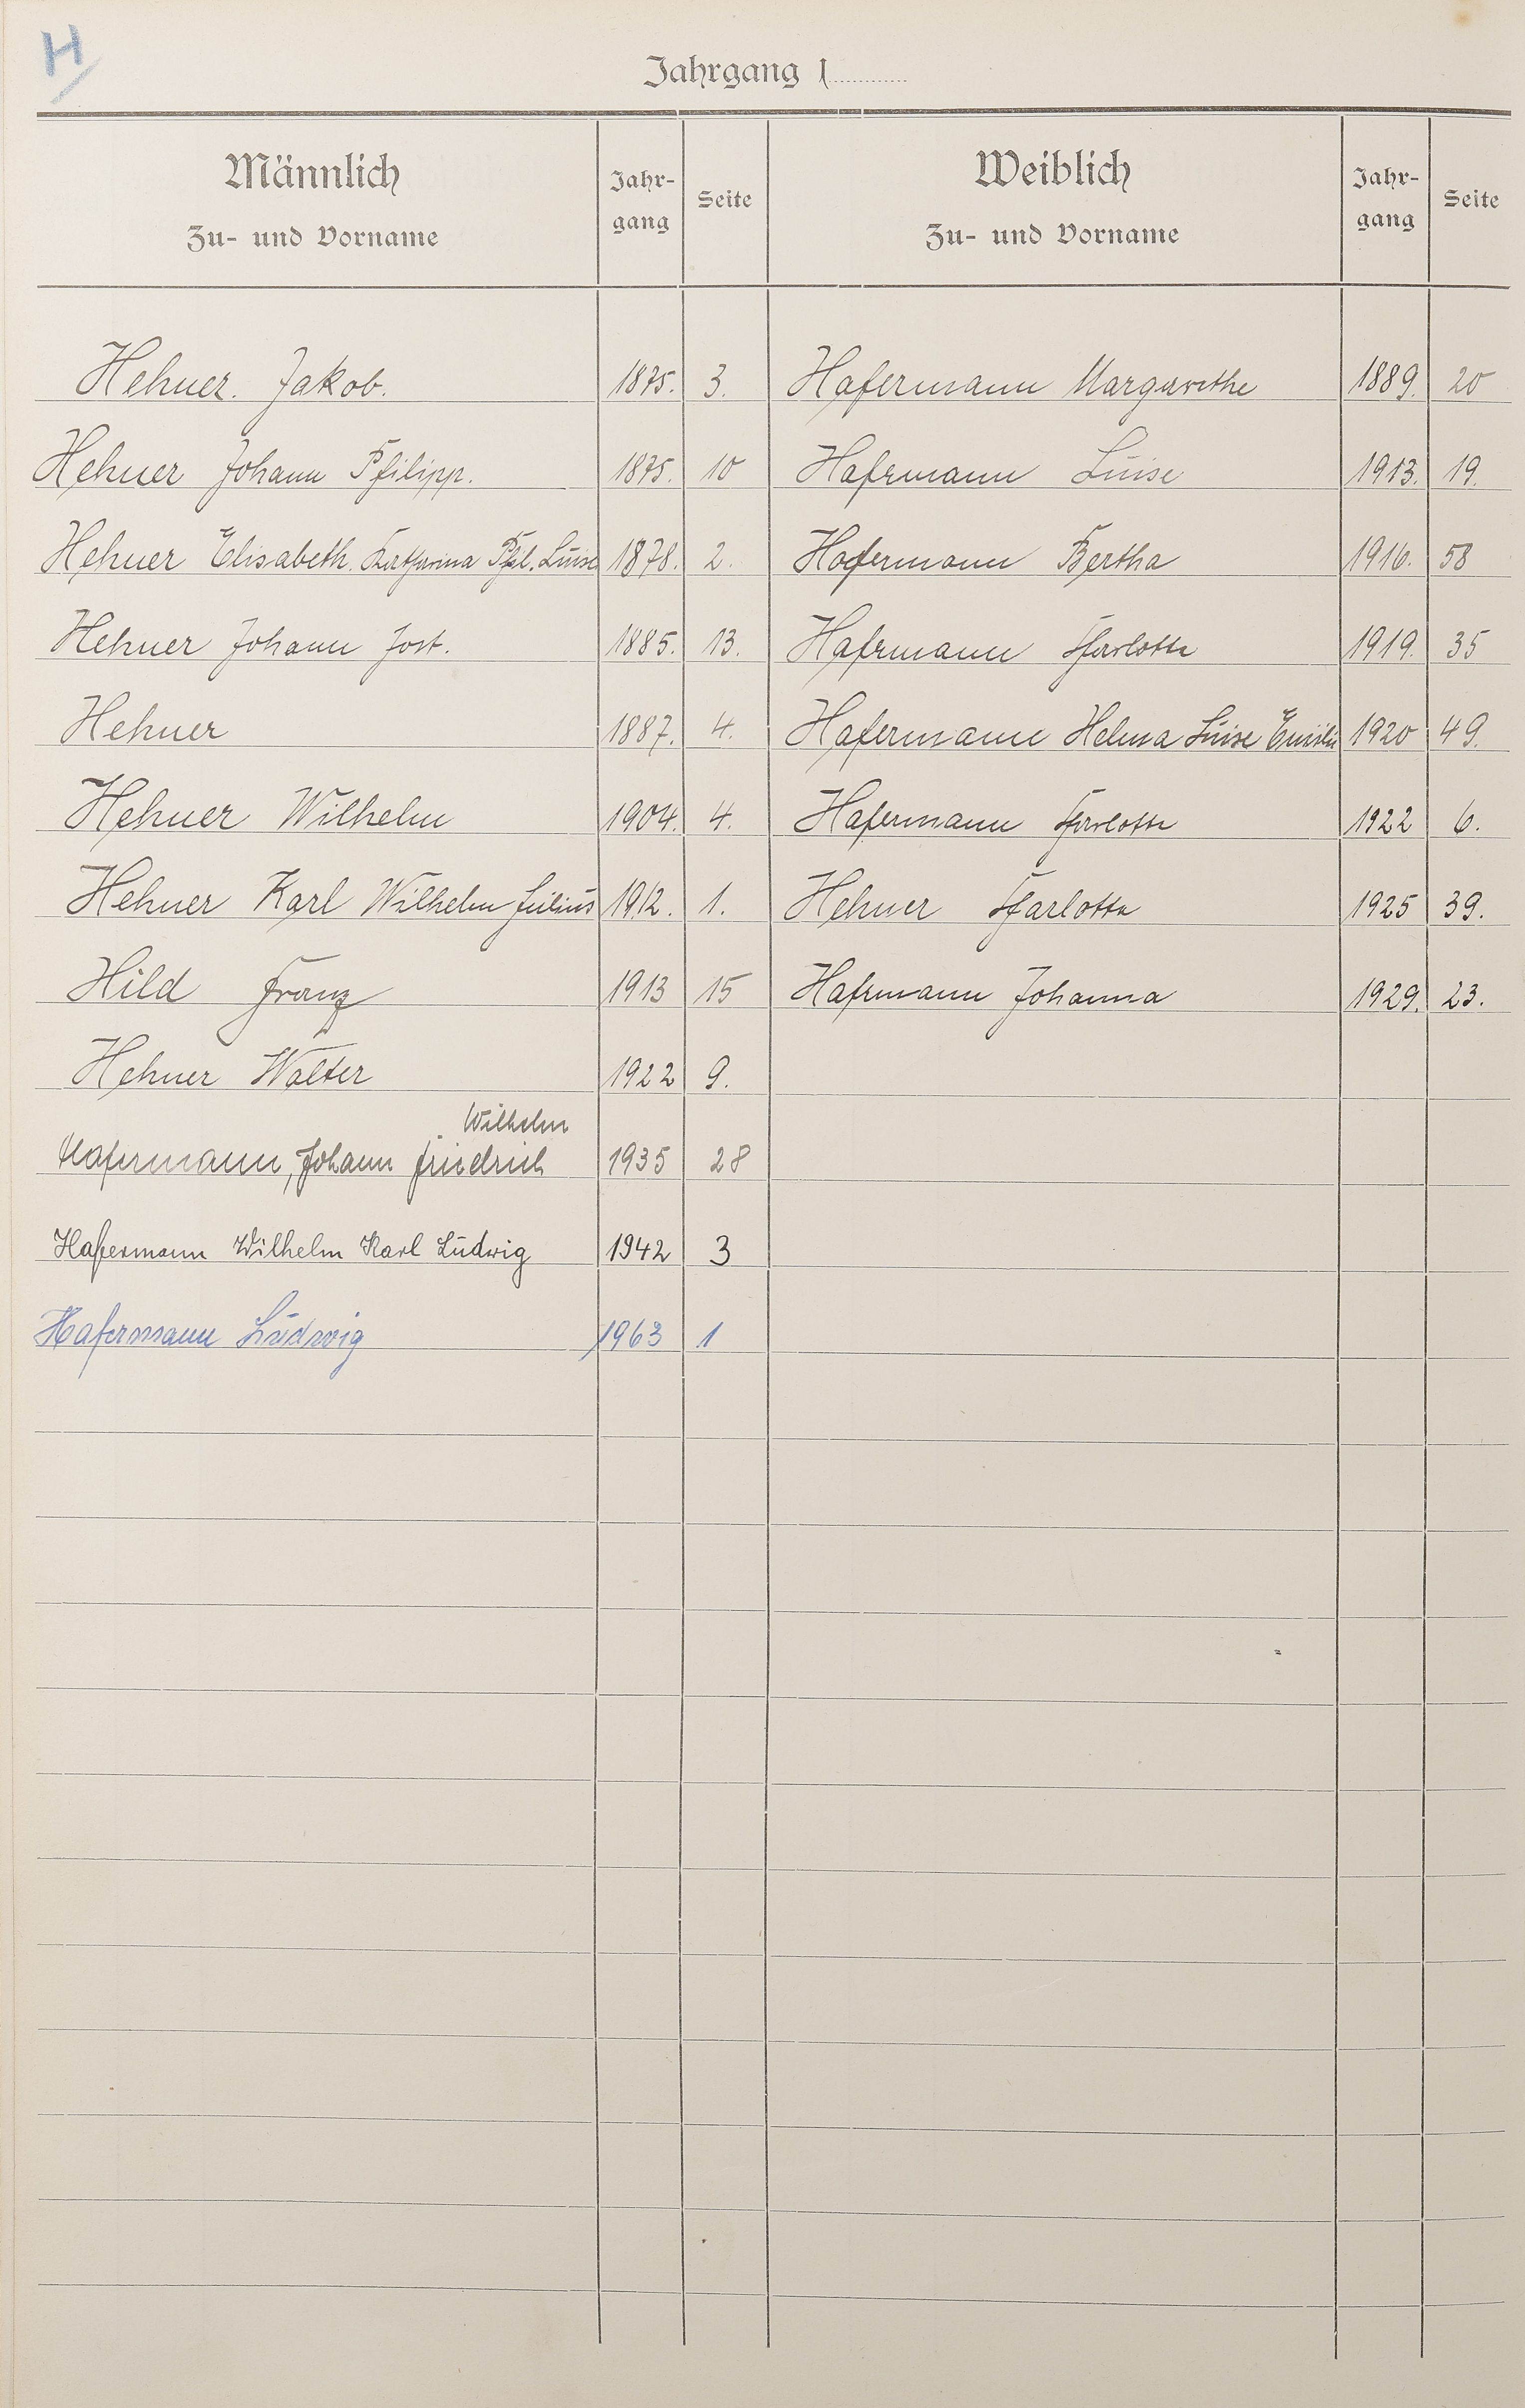 H
Jahrgang 1
Männlich
Zu- und Vorname
Jahr-
gang
Seite
Weiblich
Zu- und Vorname
Jahr-
gang
Seite
Hehner. Jakob. 1875. 3. Hafermann Margarethe 1889. 20
Hehner Johann Philipp. 1875. 10 Hafermann Luise 1913. 19.
Hehner Elisabeth. Katharina Phil. Luise 1878. 2. Hafermann Bertha 1916. 58
Hehner Johann Jost. 1885. 13. Hafermann Charlotte 1919. 35
Hehner 1887. 4. Hafermann Helma Luise Emilie 1920 49.
Hehner Wilhelm 1904. 4. Hafermann Charlotte 1922 6.
Hehner Karl Wilhelm Julius 1912. 1. Hehner Charlotte 1925 39.
Hild Franz 1913 15 Hafermann Johanna 1929. 23.
Hehner Walter 1922 9.
Wilhelm
Hafermann, Johann Friedrich 1935 28
Hafermann Wilhelm Karl Ludwig 1942 3
Hafermann Ludwig 1963 1